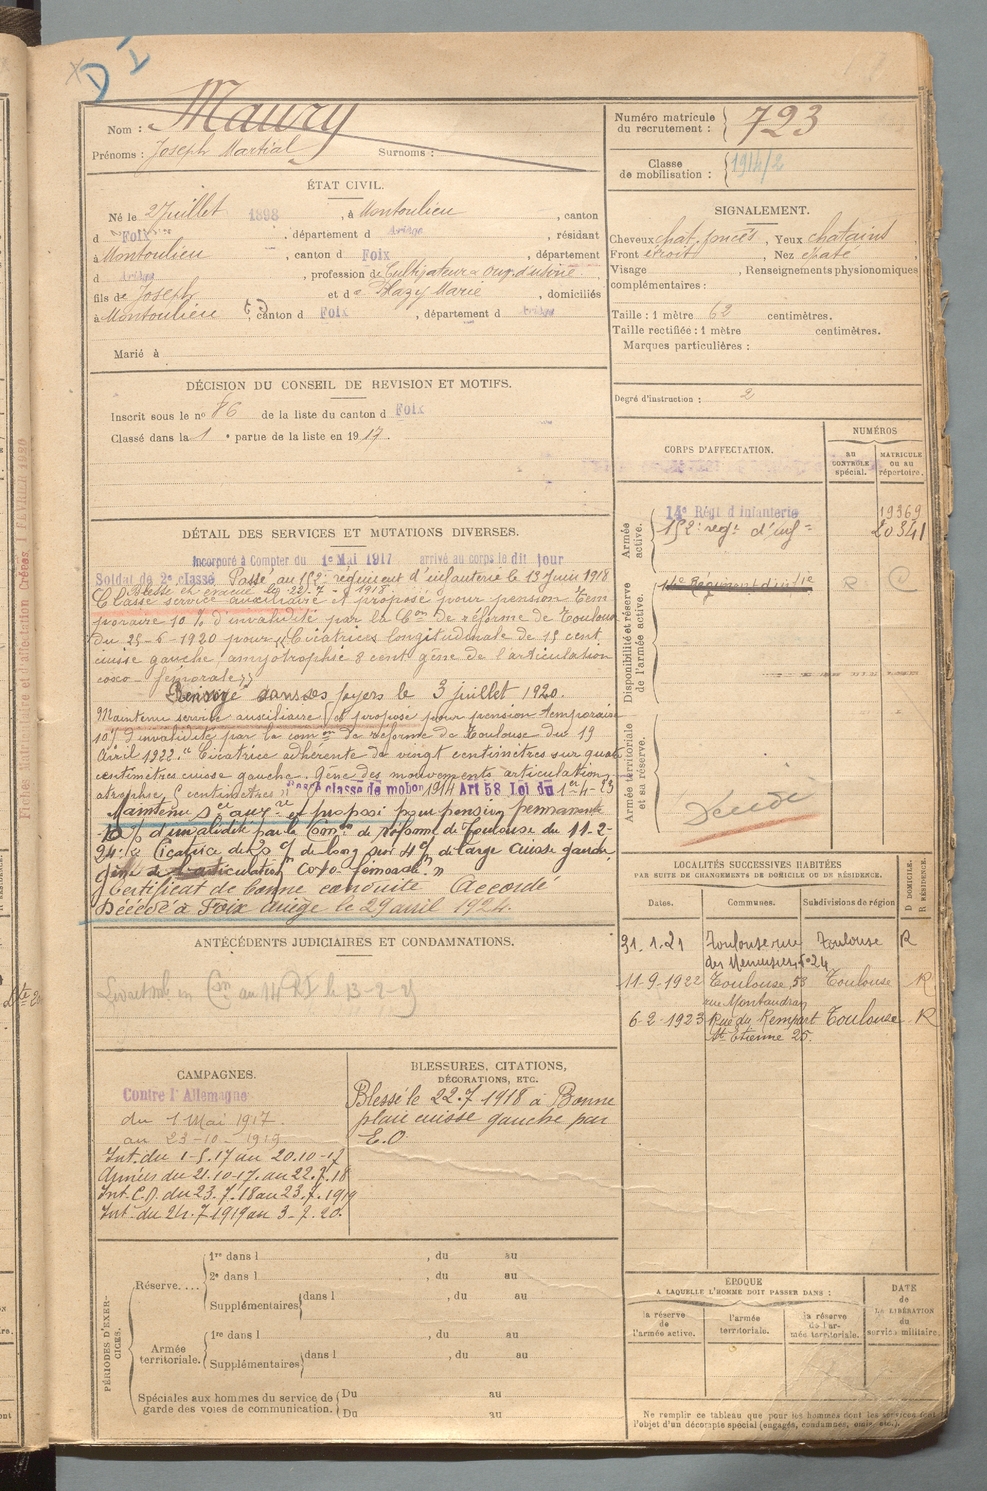 D I
Nom : Maury
Prénoms : Joseph Martial Surnoms :
Numéro matricule du recrutement : 723
Classe de mobilisation : 1914/2
ÉTAT CIVIL.
Né le 2 Juillet 1898, à Montoulieu, canton
d Foix, département d Ariège, résidant
à Montoulieu, canton d Foix, département
d Ariège, profession de Cultivateur ouv. d'usine
fils de Joseph et de Hazy Marie, domiciliés
à Montoulieu, canton d Foix, département d Ariège
Marié à
SIGNALEMENT.
Cheveux chat. foncés, Yeux chatains
Front étroit, Nez épaté
Visage, Renseignements physionomiques
complémentaires :
Taille : 1 mètre 62 centimètres.
Taille rectifiée : 1 mètre centimètres.
Marques particulières :
Degré d'instruction : 2
DÉCISION DU CONSEIL DE REVISION ET MOTIFS.
Inscrit sous le nº 86 de la liste du canton d Foix
Classé dans la 1 e partie de la liste en 1917.
DÉTAIL DES SERVICES ET MUTATIONS DIVERSES.
Incorporé à Compter du 1er Mai 1917 arrivé au corps le dit jour
Soldat de 2e classe. Passé au 152e régiment d'infanterie le 13 Juin 1918
Blessé et évacué le 22.7 - 1918.
Classé service auxiliaire et proposé pour pension tem
poraire 10 % d'invalidité par la Con de réforme de Toulouse
du 25-6-1920 pour "Cicatrice longitudinale de 15 cent.
cuisse gauche, amyotrophie 8 cent gêne de l'articulation
coxo-femorale"
Renvoyé dans ses foyers le 3 juillet 1920.
Maintenu service auxiliaire et proposé pour pension temporaire
10% d'invalidité par la comon de réforme de Toulouse du 19
Avril 1922. "Cicatrice adhérente de vingt centimètres sur quatre
centimètres cuisse gauche. Gêne des mouvements articulation,
atrophie centimètres" Passé classe de mobon 1914 Art 58 Loi du 1er-4-23
Maintenu sce auxre et proposé pour pension permanente
10% d'invalidité par la Comon de réforme de Toulouse du 11-2-
24: "Cicatrice de 20 cm de long sur 4 cm de large cuisse gauche
gêne de l'articulation coxo-fémorale."
Certificat de bonne conduite Accordé
Décédé à Foix Ariège le 29 avril 1924.
CORPS D'AFFECTATION.
NUMÉROS
AU CONTRÔLE spécial.
MATRICULE OU AU répertoire.
Armée active.
14e Régt d'Infanterie 19369
152e régt d'infie 20341
Disponibilité et réserve de l'armée active.
14e Régiment d'Infie R C
Armée territoriale et sa réserve.
Décédé
LOCALITÉS SUCCESSIVES HABITÉES
PAR SUITE DE CHANGEMENTS DE DOMICILE OU DE RÉSIDENCE.
Dates. Communes. Subdivisions de région D DOMICILE. R RÉSIDENCE.
31.1.21 Toulouse rue Toulouse R
des Menuisiers, nº 24
11-9-1922 Toulouse, 58 Toulouse R
rue Montaudran
6-2-1923 Rue du Rempart Toulouse R
St Etienne 25.
ANTÉCÉDENTS JUDICIAIRES ET CONDAMNATIONS.
CAMPAGNES.
Contre l'Allemagne
du 1 Mai 1917
au 23-10-1919.
Int. du 1-5.17 au 20.10-17
Armées du 21.10-17 au 22.7.18
Int. C.D. du 23.7.18 au 23.7.1919
Int. du 24.7.1919 au 3-7.20.
BLESSURES, CITATIONS,
DÉCORATIONS, ETC.
Blessé le 22.7.1918 à Bonne
plaie cuisse gauche par
E.O
PÉRIODES D'EXERCICES.
Réserve....
1re dans l , du au
2e dans l , du au
Supplémentaires dans l , du au
Armée territoriale.
1re dans l , du au
Supplémentaires dans l , du au
Spéciales aux hommes du service de garde des voies de communication.
Du au
Du au
ÉPOQUE
A LAQUELLE L'HOMME DOIT PASSER DANS :
la réserve de l'armée active.
l'armée territoriale.
la réserve de l'armée territoriale.
DATE de LA LIBÉRATION du service militaire.
Ne remplir ce tableau que pour les hommes dont les services font
l'objet d'un décompte spécial (engagés, condamnés, omis, etc.).